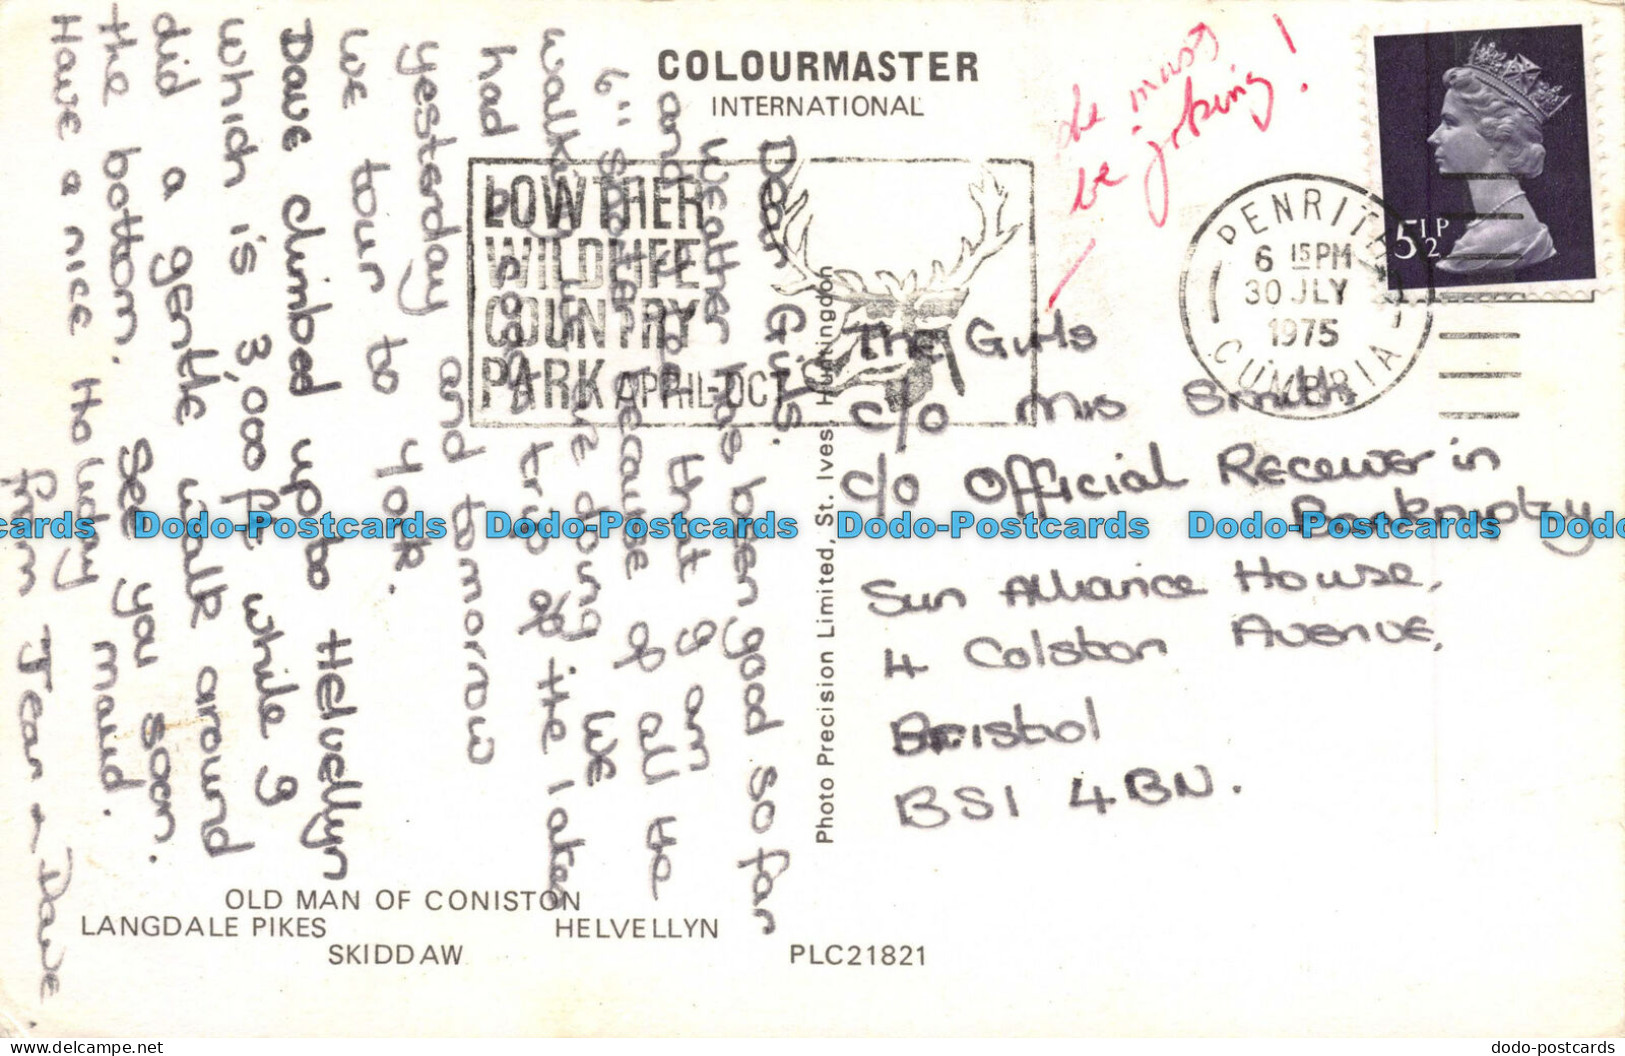 COLOURMASTER
INTERNATIONAL
Dear Girls.
Weather has been good so far
and that I am
6" shorter because of all the
walking we are doing. We
had a coach trip of the lakes
yesterday and tomorrow
we tour to York.
Dave climbed up to Helvellyn
which is 3,000 ft while I
did a gentle walk around
the bottom. See you soon.
Have a nice Holiday maud.
from Jean & Dave
he must
be joking!
LOWTHER
WILDLIFE
COUNTRY
PARK APRIL-OCT
PENRITH
6 15 PM
30 JLY
1975
CUMBRIA
5½P
The Girls
c/o Mrs Smith
c/o Official Receiver in
Bankruptcy
Sun Alliance House,
4 Colston Avenue,
Bristol
BS1 4BN.
Photo Precision Limited, St. Ives, Huntingdon
OLD MAN OF CONISTON
LANGDALE PIKES HELVELLYN
SKIDDAW PLC21821
Dodo-Postcards Dodo-Postcards Dodo-Postcards Dodo-Postcards
dodo-postcards.com